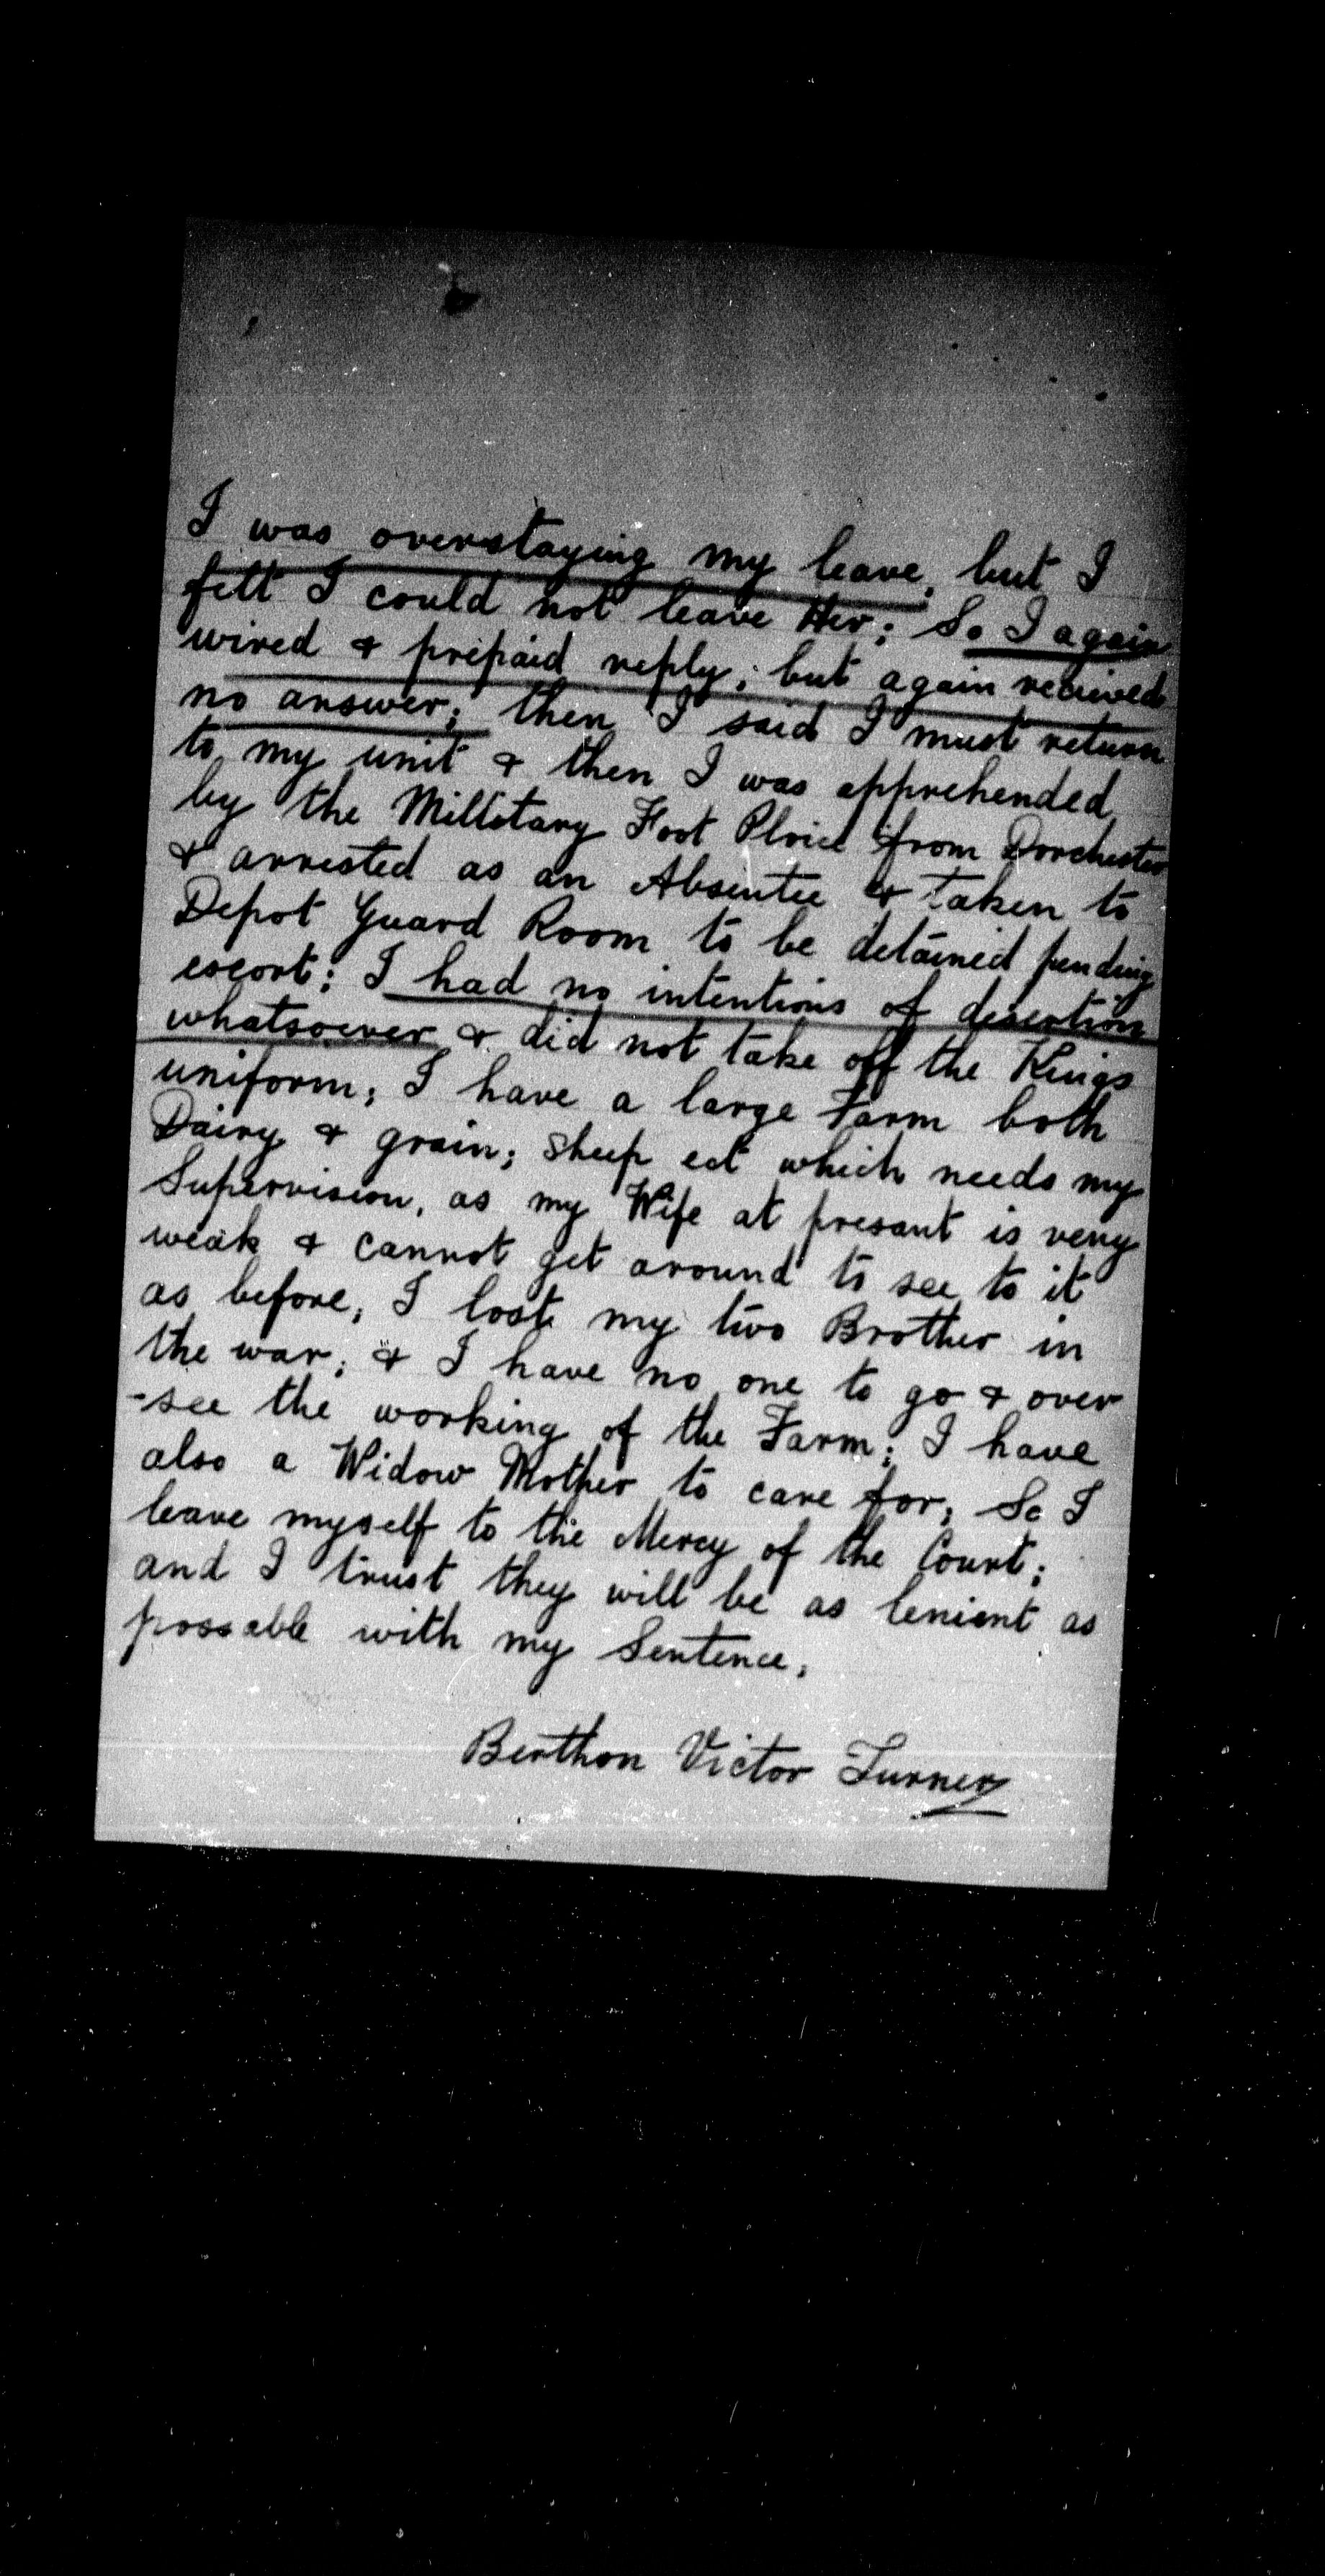 I was overstaying my leave, but I
felt I could not leave Her; So I again
wired & prepaid reply; but again recieved
no answer; then I said I must return
to my unit & then I was apprehended
by the Millitary Foot Ploice from Dorchester
& arrested as an Absentee & taken to
Depot Guard Room to be detained pending
escort; I had no intentions of desertion
whatsoever & did not take off the Kings
uniform; I have a large Farm both
Dairy & grain; sheep ect which needs my
Supervision, as my Wife at presant is very
weak & cannot get around to see to it
as before, I lost my two Brother in
the war; & I have no one to go & over
-see the working of the Farm; I have
also a Widow Mother to care for; So I
leave myself to the Mercy of the Court;
and I trust they will be as lenient as
possable with my Sentence,
Berthon Victor Turner